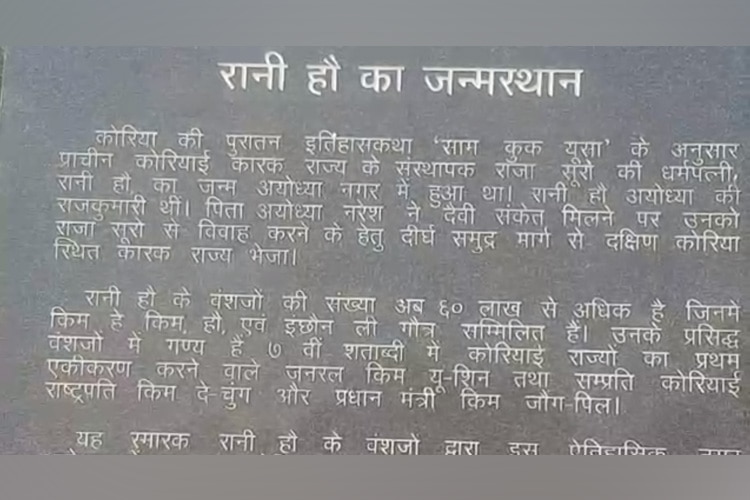 रानी हौ का जन्मस्थान
कोरिया की पुरातन इतिहासकथा 'साम कुक यूसा' के अनुसार
प्राचीन कोरियाई कारक राज्य के संस्थापक राजा सूरो की धर्मपत्नी,
रानी हौ, का जन्म अयोध्या नगर में हुआ था। रानी हौ अयोध्या की
राजकुमारी थीं। पिता अयोध्या नरेश ने दैवी संकेत मिलने पर उनको
राजा सूरो से विवाह करने के हेतु दीर्घ समुद्र मार्ग से दक्षिण कोरिया
स्थित कारक राज्य भेजा।
रानी हौ के वंशजों की संख्या अब ६० लाख से अधिक है जिनमें
किम हे किम, हौ, एवं इछौन ली गौत्र सम्मिलित हैं। उनके प्रसिद्ध
वंशजों में गण्य हैं ७ वीं शताब्दी में कोरियाई राज्यों का प्रथम
एकीकरण करने वाले जनरल किम यू-शिन तथा सम्प्रति कोरियाई
राष्ट्रपति किम दे-चुंग और प्रधान मंत्री किम जौंग-पिल।
यह स्मारक रानी हौ के वंशजों द्वारा इस ऐतिहासिक नगर